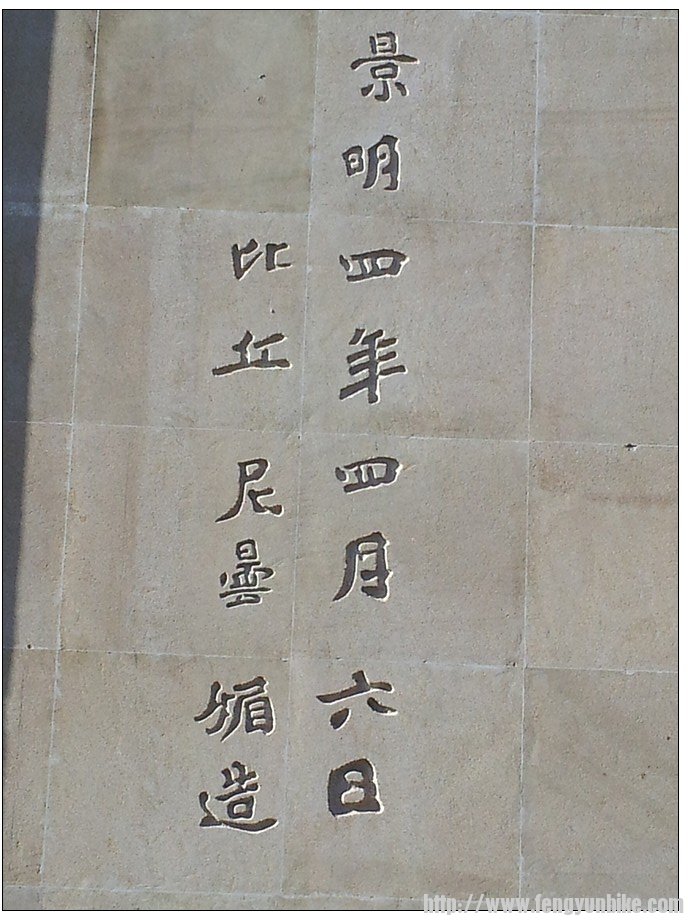 景明四年四月六日
比丘尼曇媚造
http://www.fengyunbike.com